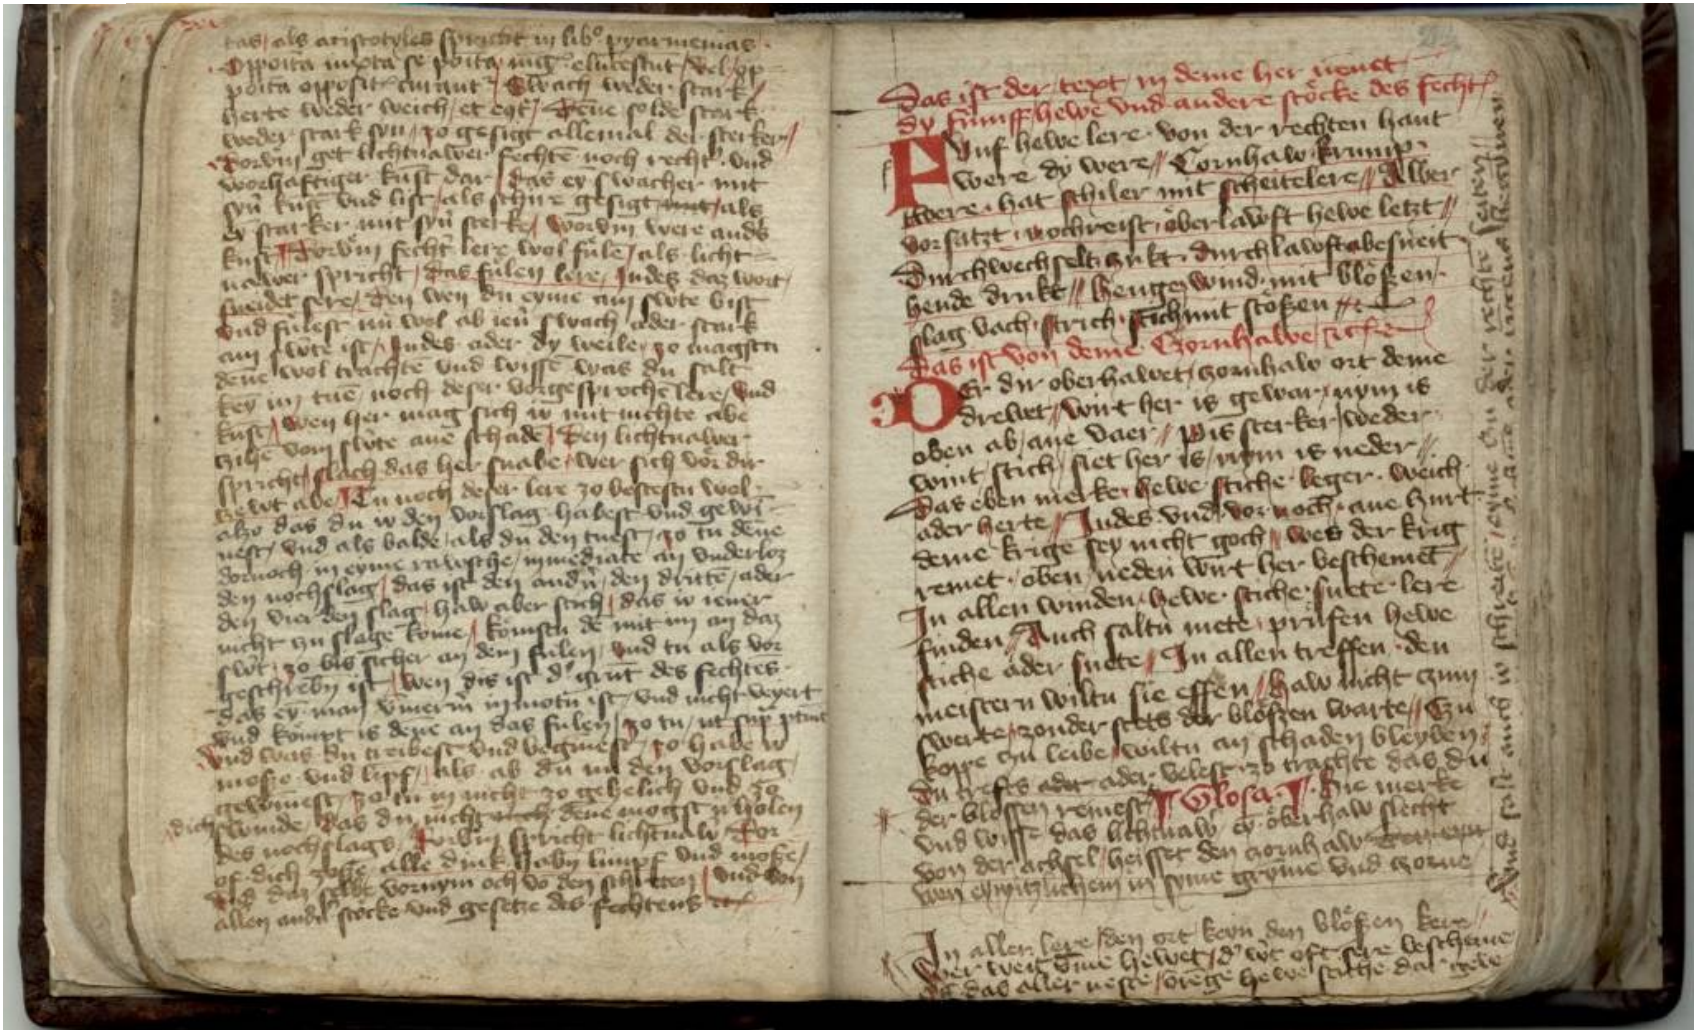 tas / als aristotyles spricht in libº pyarmenias ·
Opposita iuxta se posita mag' elucescūt / vel / op
posita oppositꝰ curant' / Swach weder stark /
herte weder weich / et eqͤ / Dēne solde stark
weder stark syn / zo gesigt allemal der sterker /
Dorvm get lichtnawer fechtē noch rechtˀ vnd
worhaftiger kūst dar / das eȳ swacher mit
syn' kunst vnd list / als schire gesigt mit / als
eȳ starker mit syn' sterke / worvm were and's
kūst / Dorvm fechtˀ lere wol fülē / als licht
nawer spricht / das fulen lere / Indes daz wort /
sneidet sere / Den wen du eyme am swte bist
vnd fulest nu wol ab ien' swach ader stark
am swte ist / Indes ader dy weile / zo magstu
dēne wol trachtē vnd wissē was du salt
keȳ im tuē / noch deser vorgesprochē lere / vnd
kūst / wen her mag sich io mit nichte abe
czihē vom swte ane schadē / Den lichtnawer
spricht / slach das her snabe / wer sich vor dir
zewt abe / Tu noch deser lere zo bestestu wol
alzo das du io den vorslag habest vnd gewī
nest / vnd als balde / als du den tuest / zo tu dēne
dornoch in eyme rawsche / immediate an vnderloz
den nochslag / das ist den and'n / den drittē / ader
den vierdē slag / haw aber stich / das io iener
nicht zu slage kome / Komstu dē mit im an daz
swt / zo bis sicher an dem fulen / vnd tu als vor
geschreb'n ist / wen dis ist d' grūt des fechtes
das eȳ man vmerm in motu ist / vnd nicht veyert
vnd kompt is dēne an das fulen / zo tu / ut supͣ ptuit
vnd was du treibest vnd begīnest / zo habe io
mose vnd limpf / als ab du im den vorslag
gewīnest / zo tu in nicht zo gehelich vnd zo
swinde / das du dich nicht noch dēne mogst irholen
des nochslags / Dorvm spricht lichtnaw' / Vor
of dich zoͤße / alle dink habn limpf vnd moße /
Vnd daz selbe vornym och vō den schreten / vnd von
allen and'n stöcke vnd gesetze des fechtens etc̄
Das ist der text / in deme her nenet
dy fumff hewe vnd andere stöcke des fechtˀ
Funf hewe lere / von der rechten hant
were dy were // Czornhaw · krump ·
twere · hat schiler mit scheitelere // Alber
vorsatzt · nochreist · oͤberlawft hewe letzt //
Durchwechselt · czukt · durchlawft abesneit
hende drukt // henge wind · mit bloͤßen ·
slag vach · strich · stich mit stoͤßen //
Das ist von deme Czornhawe / etc̄
Der dir oberhawet / czornhaw ort deme
drewet // wirt her is gewar / nym is
oben ab / ane vaer // Pis sterker / weder
wint / stich / siet her is / nym is neder //
Das eben merke / hewe stiche / leger · weich
ader herte // Indes vnd vor noch / ane hurt
deme krige sey nicht goch // wes der krig
remet · oben / neden wirt her beschemet //
In allen winden / hewe · stiche · snete · lere
finden // Auch saltu mete · pruͤfen hewe
stiche ader snete // In allen treffen · den
meistern wiltu sie effen // haw nicht czum
swerte / zonder stets der bloͤßen warte // Czu
koppe czu leibe / wiltu an schaden bleyben /
Du trefts ader ader velest · zo trachte das du
der bloͤssen remest / Glosa / Hie merke
vnd wisse das lichtnaw' / eȳ oͤberhaw slecht
von der achsel / heisset den czornhaw
wen eyn itzlichem in syme gryme vnd czorne
In aller lere / den ort keyn den bloͤßen kere //
Wer weit vme hewet / d' wirt oft sere bescheme
Of das aller neste / brenge hewe stiche dar gewe